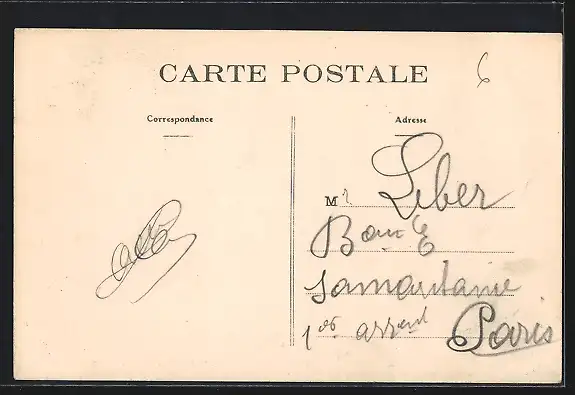 CARTE POSTALE
6
Correspondance
Adresse
Mr Leber
Samaritaine
1er arrent Paris